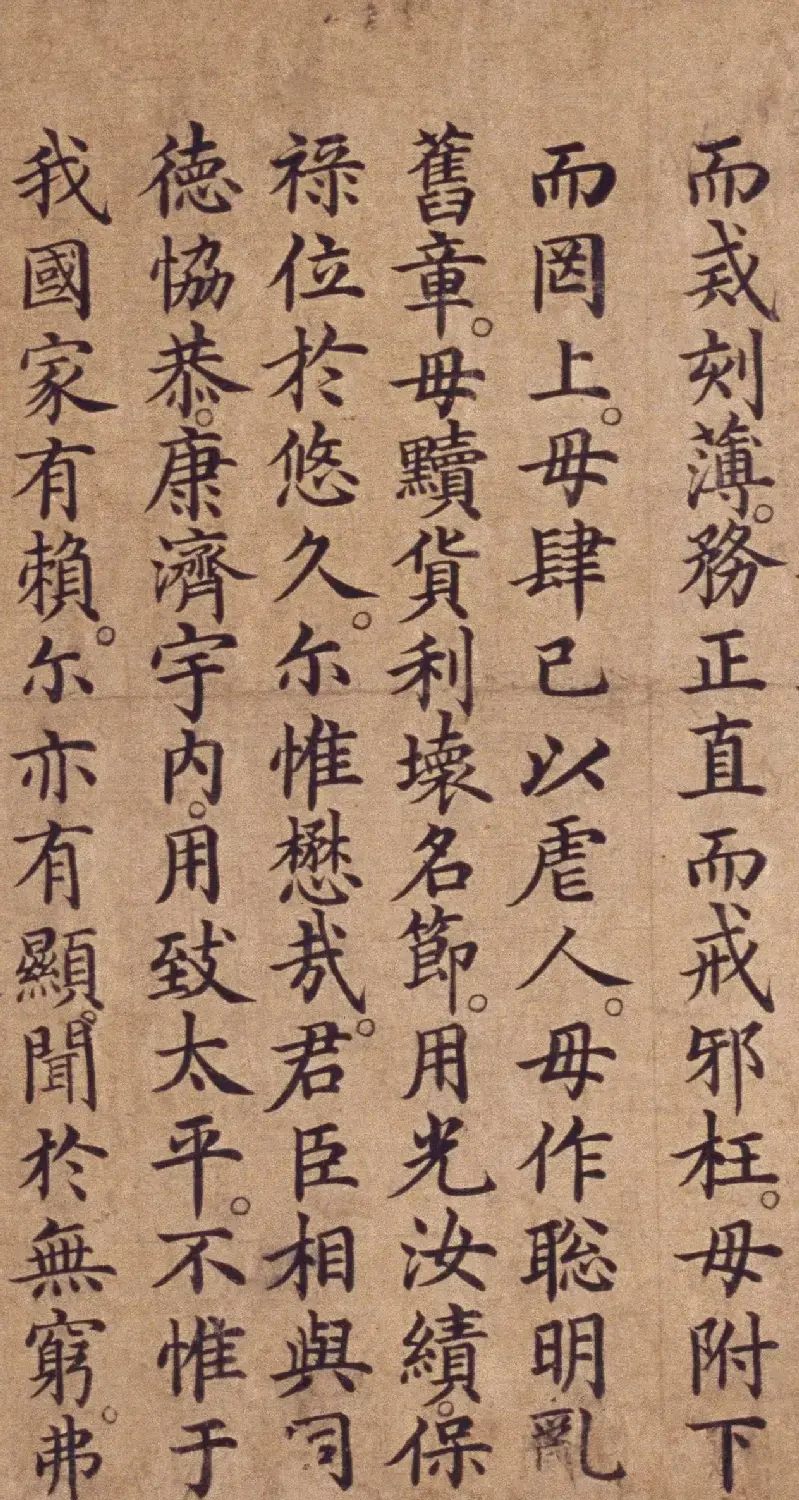 而戒刻薄。務正直而戒邪枉。毋附下
而罔上。毋肆己以虐人。毋作聡明亂
舊章。毋黷貨利壞名節。用光汝績。保
祿位於悠久。尓惟懋哉。君臣相與同
徳恊恭。康濟宇内。用致太平。不惟于
我國家有賴。尓亦有顯聞於無窮。弗